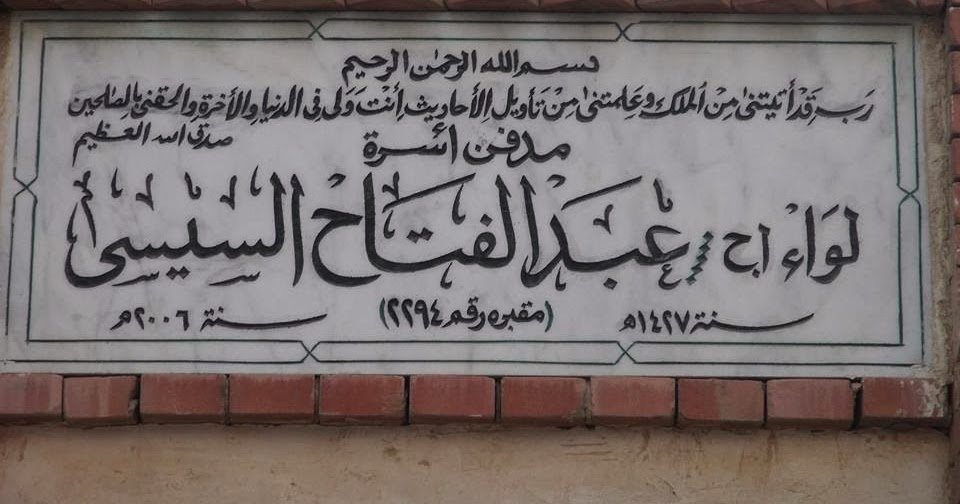 بسم الله الرحمن الرحيم
رب قد أتيتنى من الملك وعلمتنى من تأويل الأحاديث أنت ولى فى الدنيا والأخرة والحقنى بالصالحين
صدق الله العظيم
مدفن أسرة
لواء أح / عبد الفتاح السيسى
سنة ١٤٢٧هـ (مقبره رقم ٢٢٩٤) سنة ٢٠٠٦م